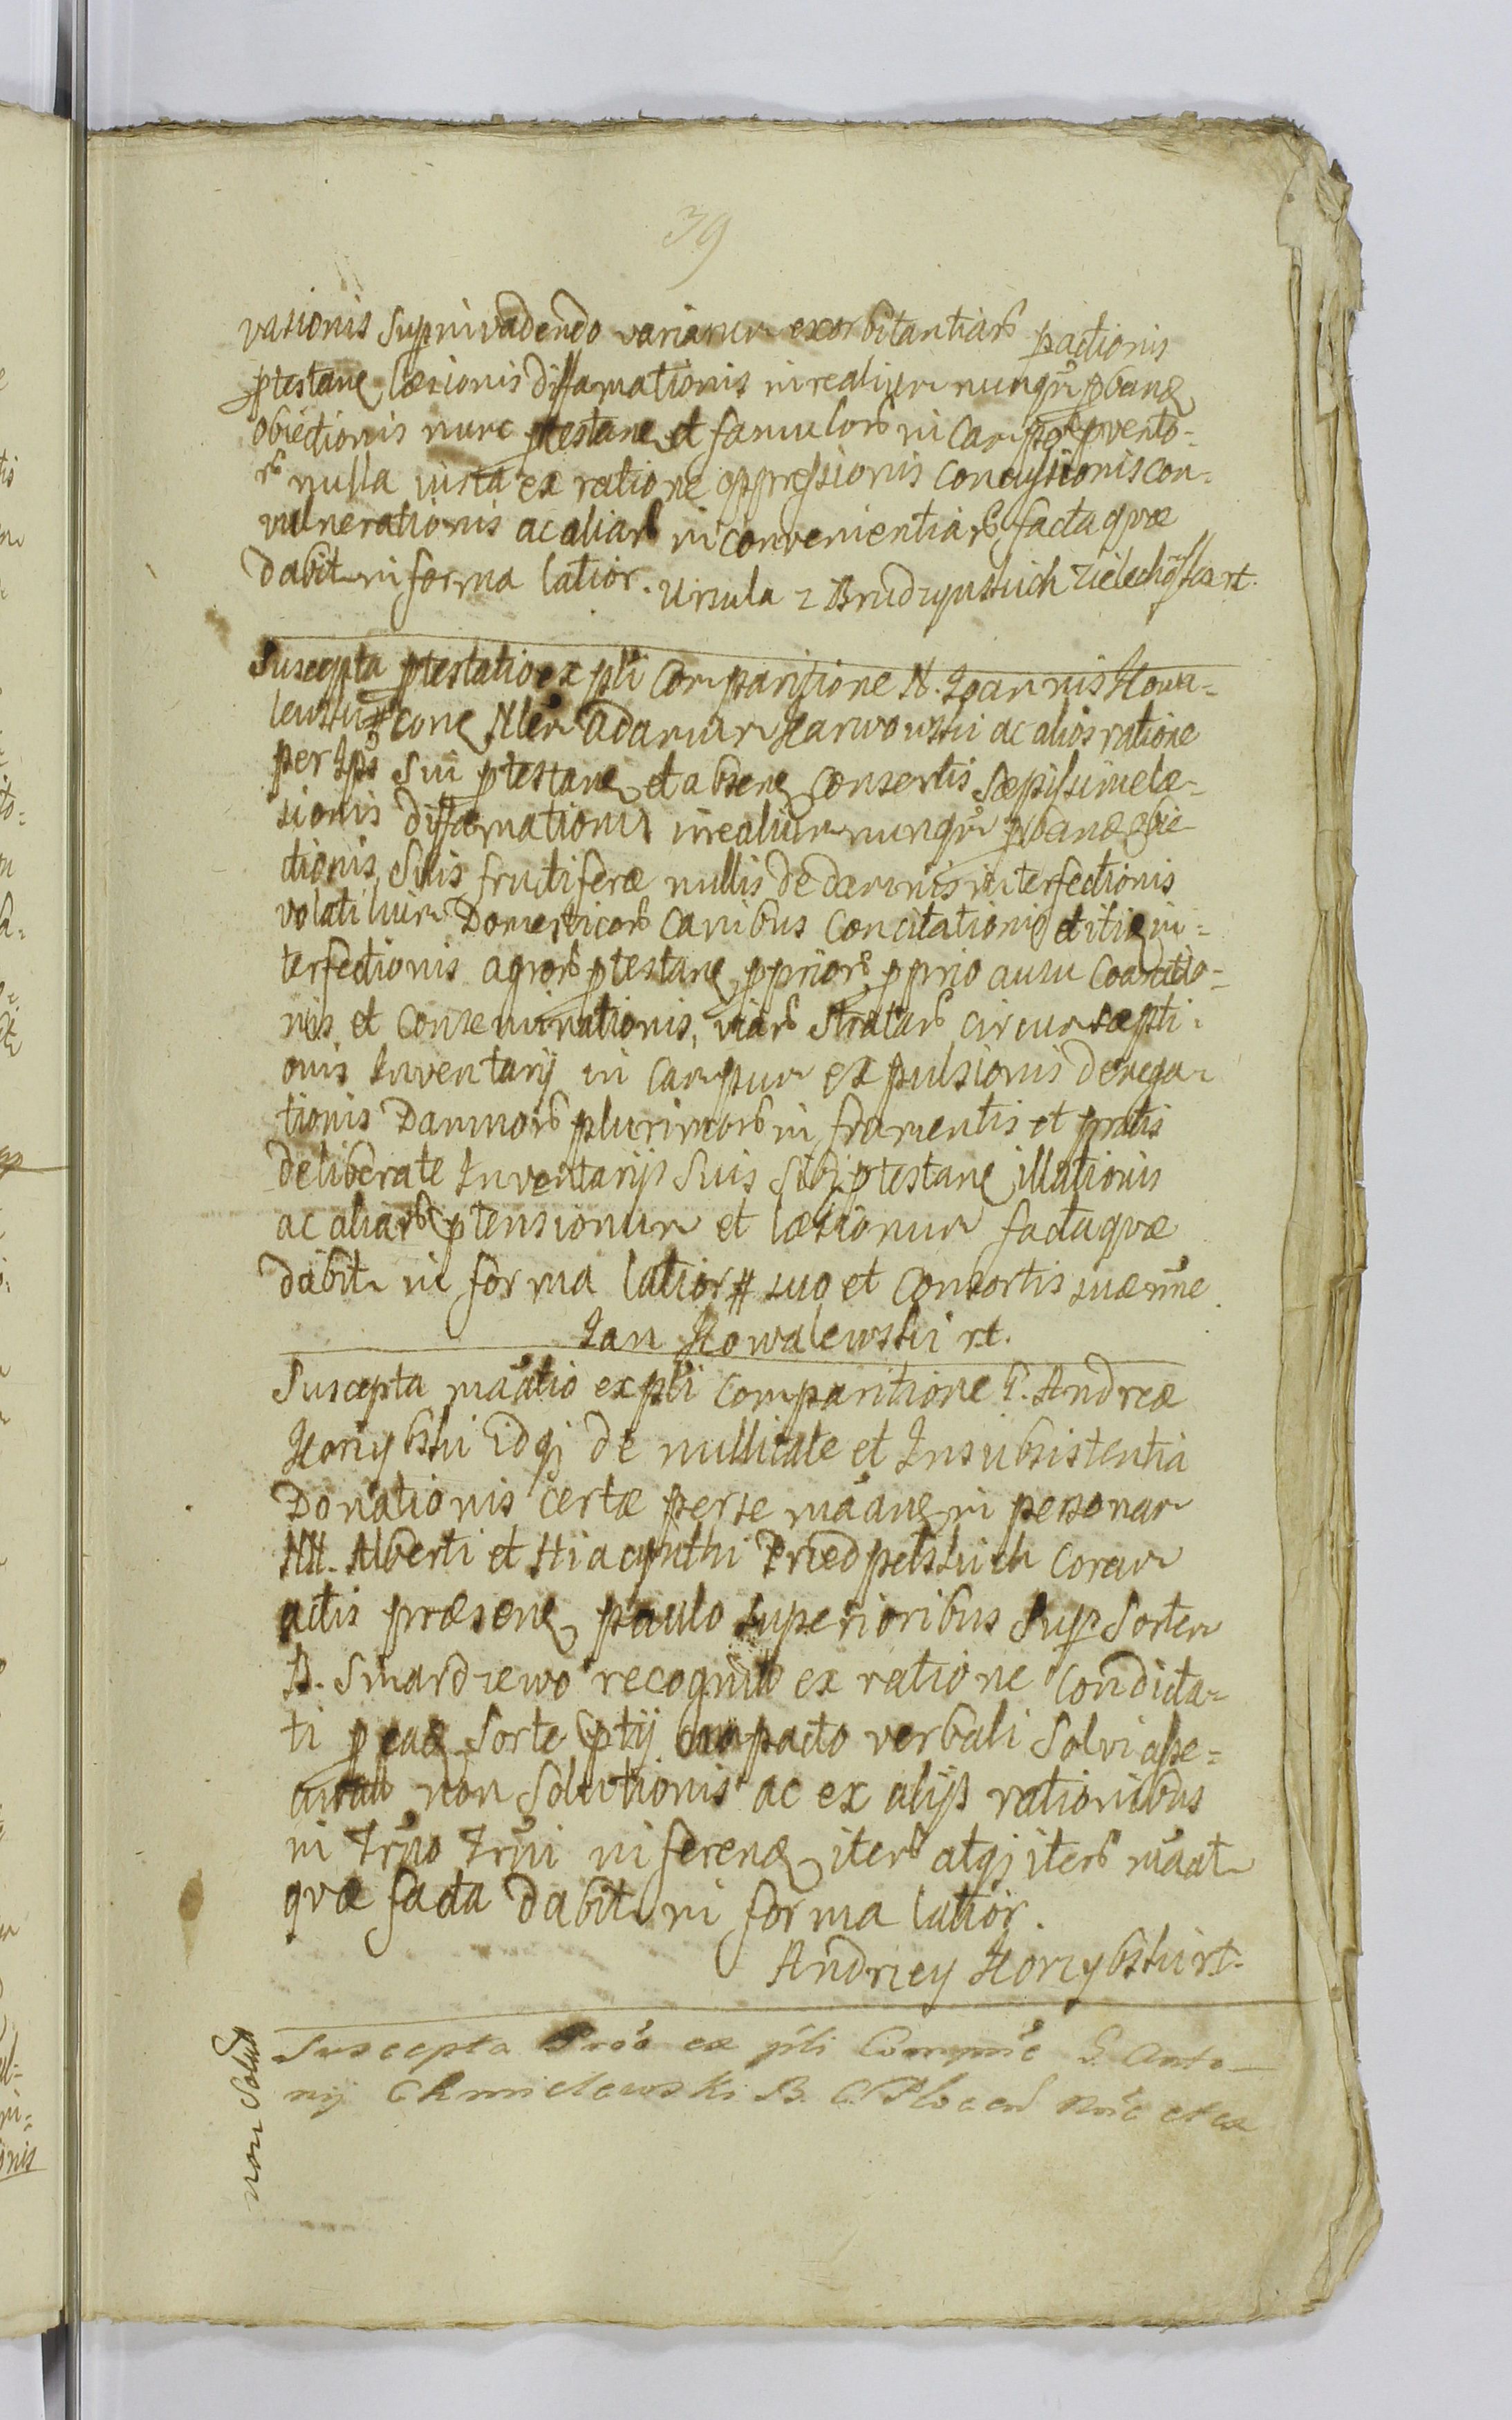 39
vationis super invadendo variarum exorbitantiarũ patrationis
ptestanẽ læsionis diffamationis in realium nunqm̃ pbanẽ
obiectionis nunc ptestanẽ et famulorũ in campo repvento-
rũ nulla iusta ex ratione oppressionis concussionis con-
vulnerationis ac aliarũ inconvenientiarũ facta quæ
dabitur in forma latiori. Ursula z Brudzynskich Zielechoska rt.
Suscepta ptestatio ex pñti Comparitione N. Joannis Kowa-
lewski # cone Nlem Adamum Karwowski ac alios ratione
per Ipsõ sui ptestanẽ et absenẽ consortis sæpissime læ-
sionis diffamationis irrealium nunqm̃ pbanæ obie-
ctionis, suis fructiferæ nullis de damnis interfectionis
volatilium Domesticorũ canibus concitationis et itiẽ in-
terfectionis agrorũ ptestanẽ ppriorũ pprio ausu coarctio-
nis et conseminationis, viarũ stratarũ circumsæpti-
onis Inventarij in campum expulsionis denega-
tionis Damnorũ plurimorũ in frumentis et pratis
deliberate Inventarijs suis sibi ptestanẽ illationis
ac aliarũ ptensionum et læsionum facta quæ
dabitur in forma latiori # suo et consortis suæ nñe
Jan Kowalewski rt.
Suscepta mãatio ex pñti comparitione G. Andreæ
Korzybski idqz de nullitate et Insubsistentia
Donationis certæ per se mãanẽ in personam
NN. Alberti et Hiacynthi Przedpelskich coram
actis præsenẽ paulo superioribus super sortem
B. Smardzewo recognitæ ex ratione condicta-
ti p eaẽ sorte ptij compacto verbali solvi
non solutionis ac ex alijs rationibus
in Trño Trñi inferenẽ iterũ atqz iterũ mãatur
quæ facta dabitur in forma latiori.
Andrzey Korzybski rt.
Suscepta Prõo ex pñti Compnẽ G. Anto-
nij Chmielewski B. C. Plocen nõie et ex
non solut